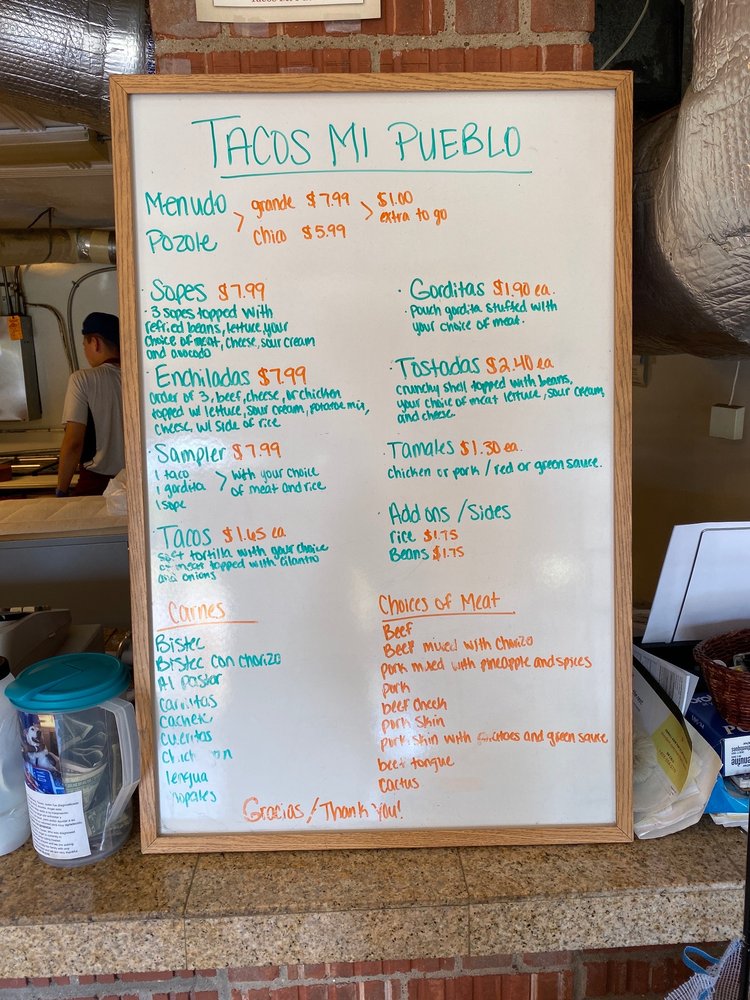 TACOS MI PUEBLO
Menudo
Pozole
> grande $7.99
chico $5.99
> $1.00
extra to go
· Sopes $7.99
· 3 sopes topped with
refried beans, lettuce, your
choice of meat, cheese, sour cream
and avocado
· Enchiladas $7.99
order of 3, beef, cheese, or chicken
topped w/ lettuce, sour cream, potatoe mix,
cheese, w/ side of rice
· Sampler $7.99
1 taco
1 gordita
1 sope
> with your choice
of meat and rice
· Tacos $1.65 ea
soft tortilla with your choice
of meat topped with cilantro
and onions
· Gorditas $1.90 ea.
· Pouch gordita stuffed with
your choice of meat.
· Tostadas $2.40 ea
crunchy shell topped with beans,
your choice of meat lettuce, sour cream,
and cheese.
· Tamales $1.30 ea.
chicken or pork / red or green sauce.
· Add ons / Sides
rice $1.75
Beans $1.75
Carnes
Bistec
Bistec con chorizo
Al pastor
carnitas
cachete
cueritos
lengua
nopales
Choices of Meat
Beef
Beef mixed with chorizo
pork mixed with pineapple and spices
pork
beef cheek
pork skin
pork skin with and green sauce
beef tongue
cactus
Gracias / Thank You!